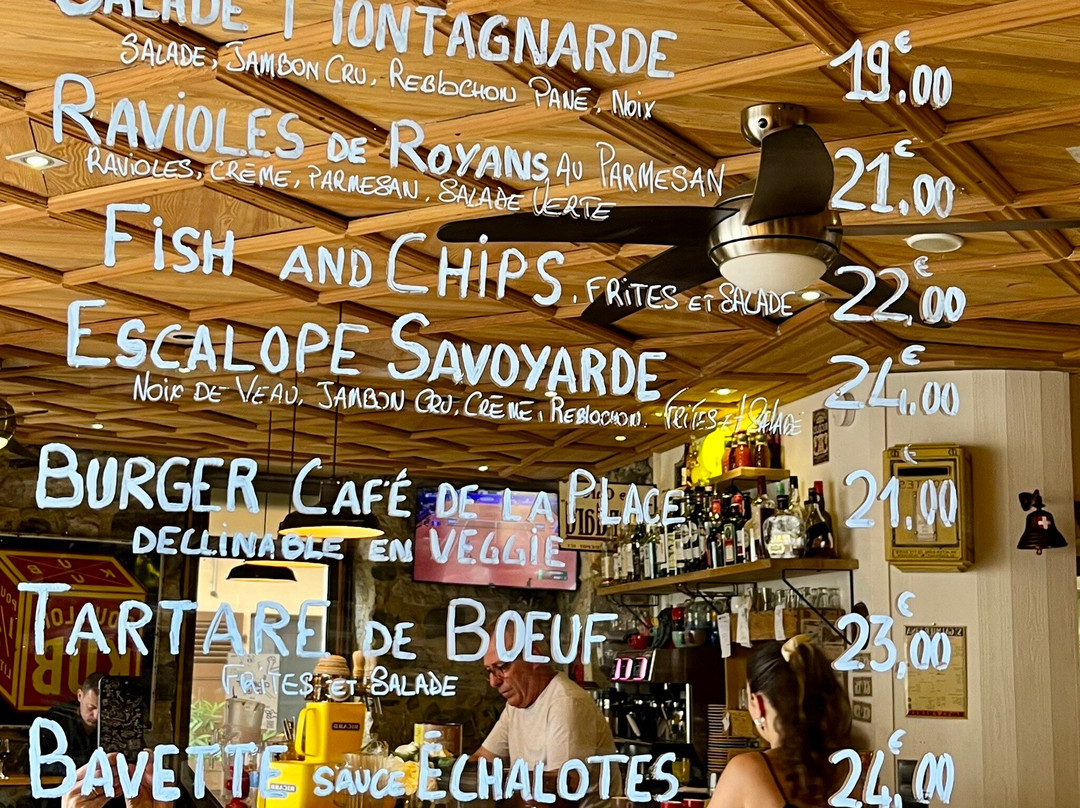 SALADE MONTAGNARDE 19€,00
SALADE, JAMBON CRU, REBLOCHON PANÉ, NOIX
RAVIOLES DE ROYANS AU PARMESAN 21€,00
RAVIOLES, CRÈME, PARMESAN, SALADE VERTE
FISH AND CHIPS, FRITES ET SALADE 22€,00
ESCALOPE SAVOYARDE 24€,00
NOIX DE VEAU, JAMBON CRU, CRÈME, REBLOCHON. FRITES ET SALADE
BURGER CAFÉ DE LA PLACE 21€,00
DECLINABLE EN VEGGIE
TARTARE DE BOEUF 23€,00
FRITES ET SALADE
BAVETTE SAUCE ÉCHALOTES 24€,00
KUB
BOUILLON
KUB
RICARD
RICARD